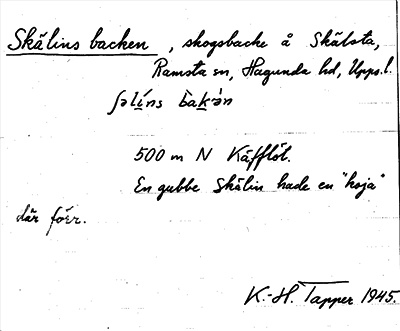 Skålins backen, skogsbacke å Skålsta,
Ramsta sn, Hagunda hd, Upps. l.
ʃəlíns bàkən
500 m N Käfflöt.
En gubbe Skålin hade en "koja"
där förr.
K.-H. Tapper 1945.